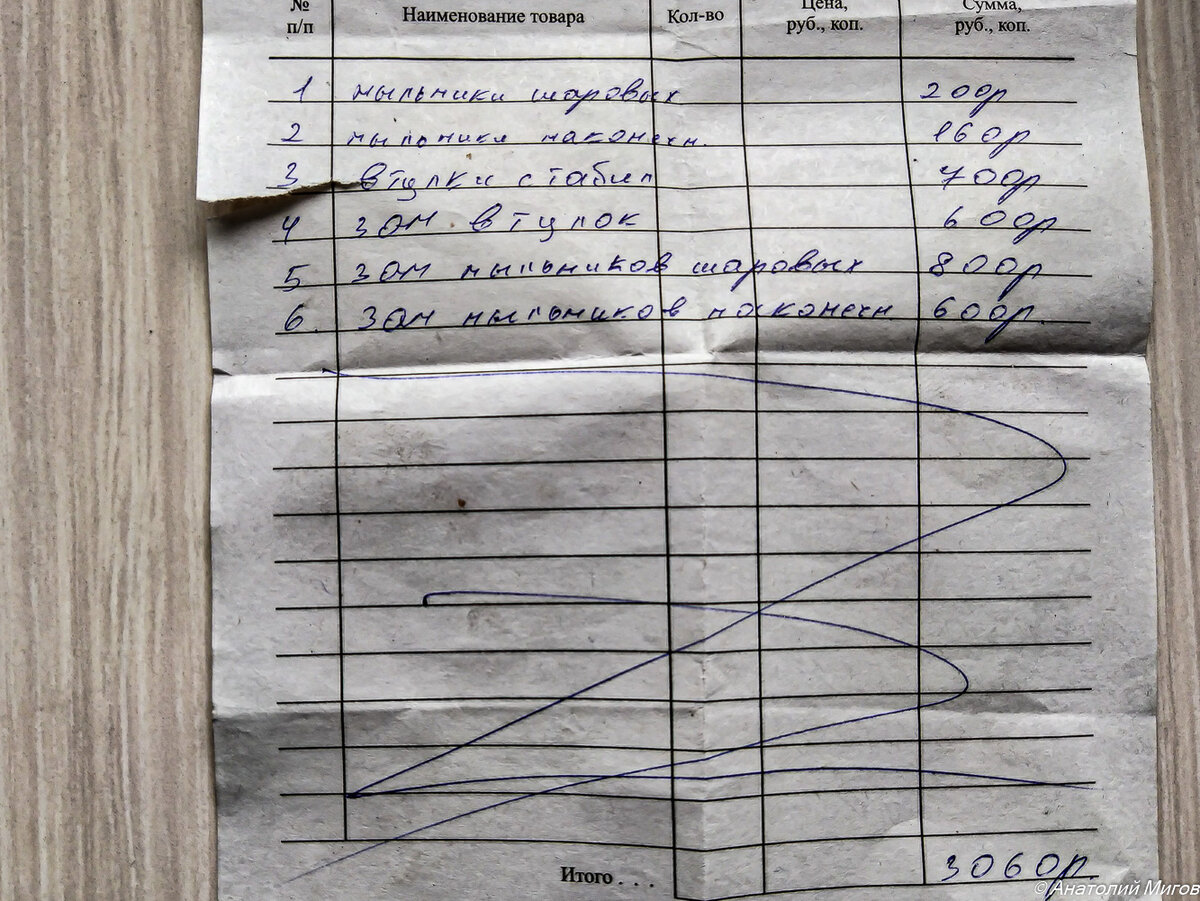 № п/п Наименование товара Кол-во Цена, руб., коп. Сумма, руб., коп.
1 пыльники шаровых 200р
2 пыльники наконечн. 160р
3 втулки стабил 700р
4 зам втулок 600р
5 зам пыльников шаровых 800р
6. зам пыльников наконечн 600р.
Итого . . . 3060р
© Анатолий Мигов